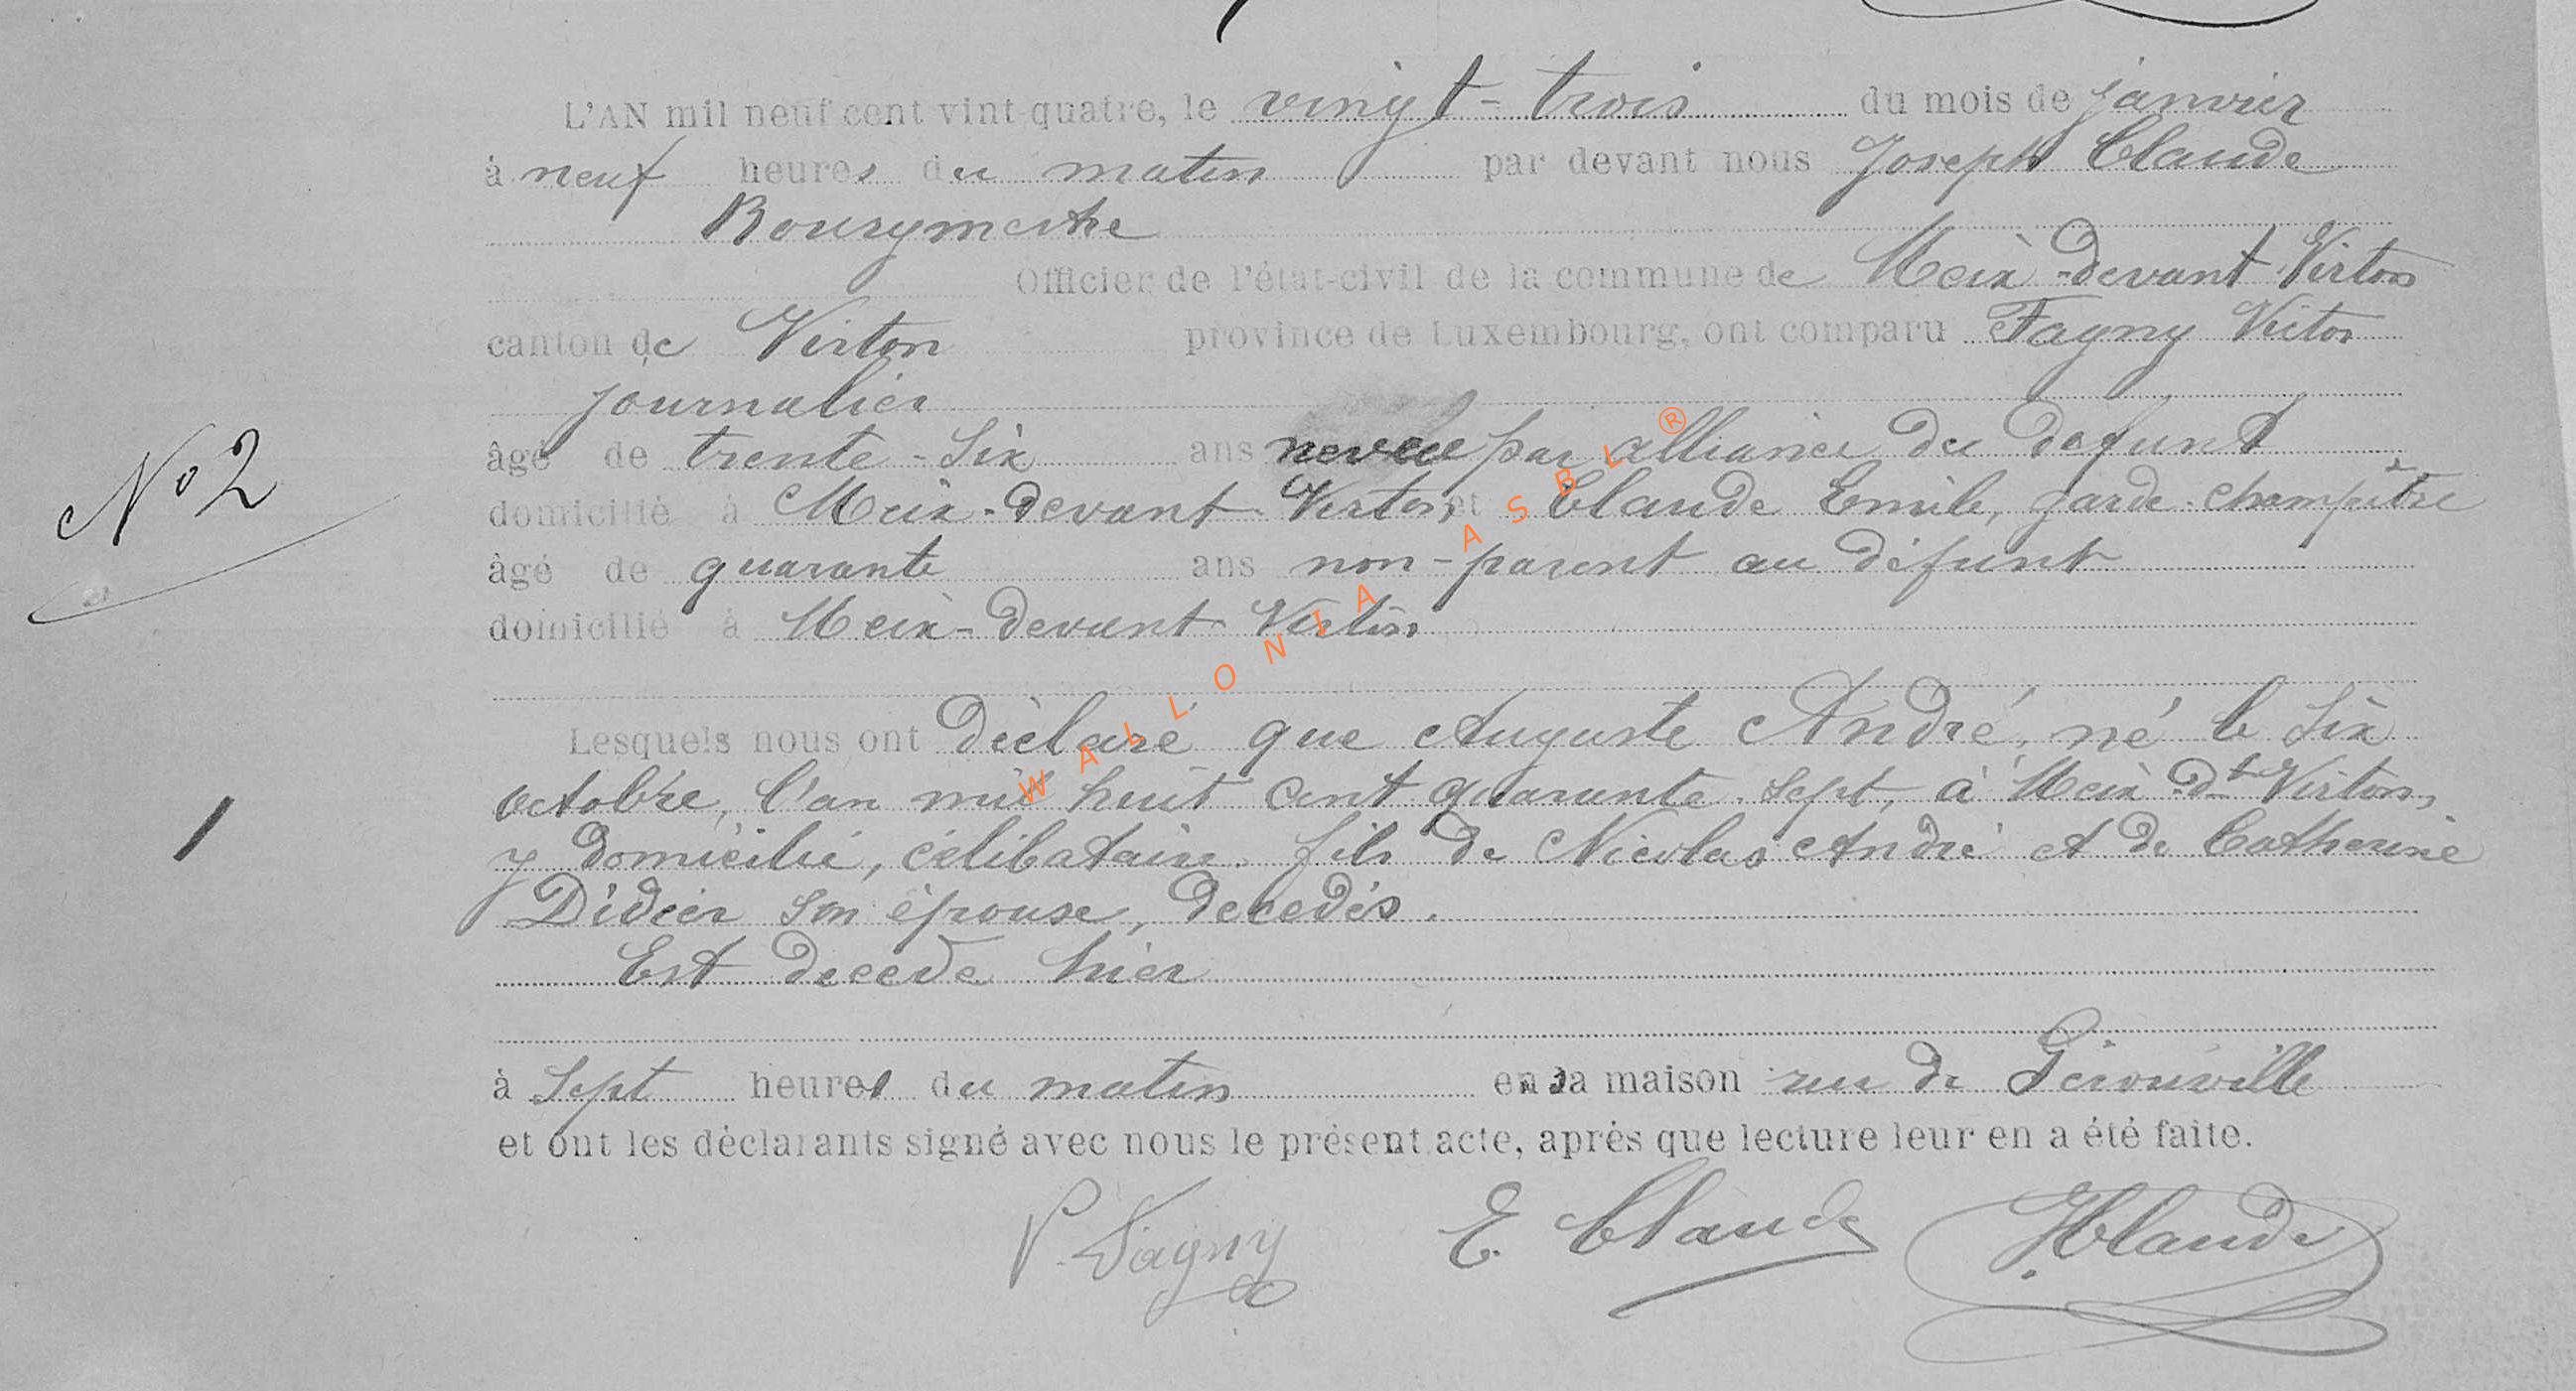 L'AN mil neuf cent vint-quatre, le vingt-trois du mois de janvier
à neuf heures du matin par devant nous Joseph Claude
Bourgmestre
Officier de l'état-civil de la commune de Meix-devant-Virton
canton de Virton province de Luxembourg, ont comparu Fagny Victor
journalier
âgé de trente-six ans neveu par alliance du défunt
domicilié à Meix-devant-Virton, et Claude Emile, garde-champêtre
N° 2
âgé de quarante ans non-parent au défunt
domicilié à Meix-devant-Virton
Lesquels nous ont déclaré que Auguste André, né le six
octobre, l'an mil huit cent quarante-sept, à Meix-dt-Virton,
1
y domicilié, célibataire, fils de Nicolas André et de Catherine
Didier son épouse, décédés.
Est décédé hier
à sept heures du matin en sa maison rue de Gérouville
et ont les déclarants signé avec nous le présent acte, après que lecture leur en a été faite.
V. Fagny E. Claude J Claude
WALLONIA ASBL ®